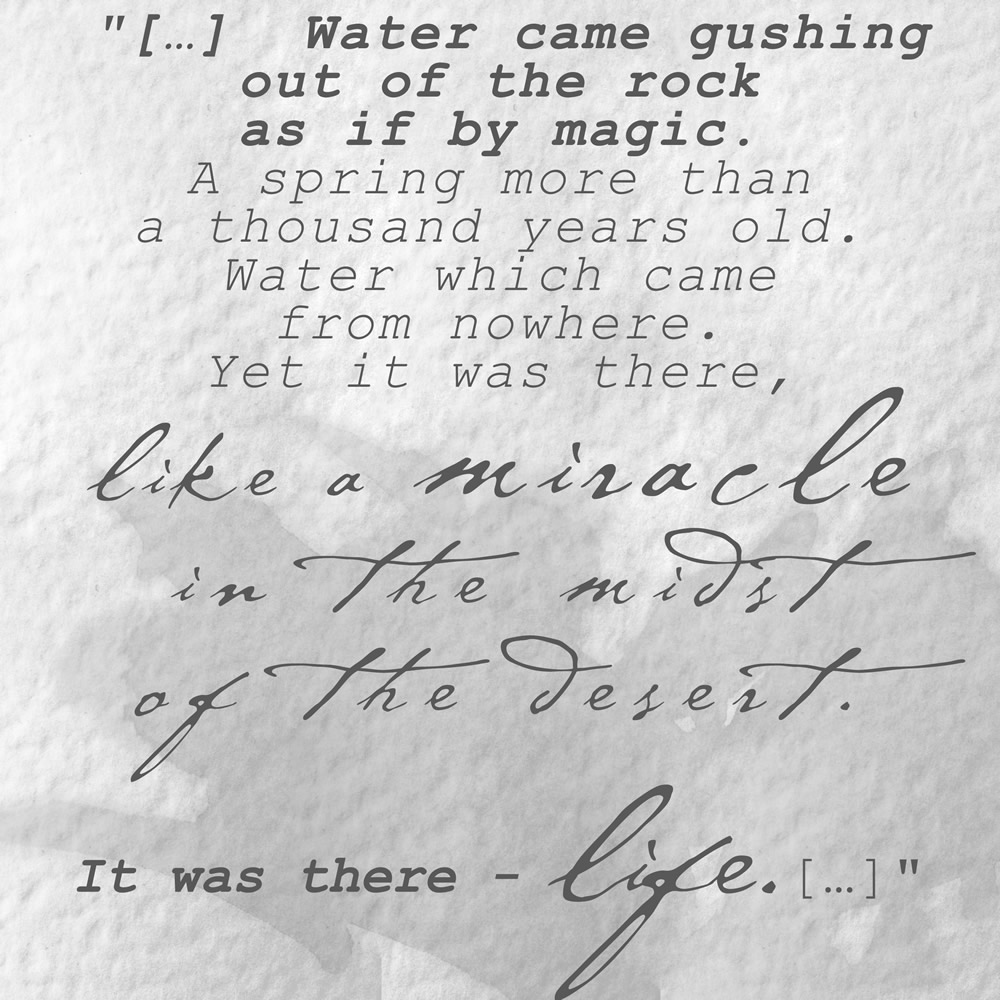 "[…] Water came gushing
out of the rock
as if by magic.
A spring more than
a thousand years old.
Water which came
from nowhere.
Yet it was there,
like a miracle
in the midst
of the desert.
It was there - life.[…]"